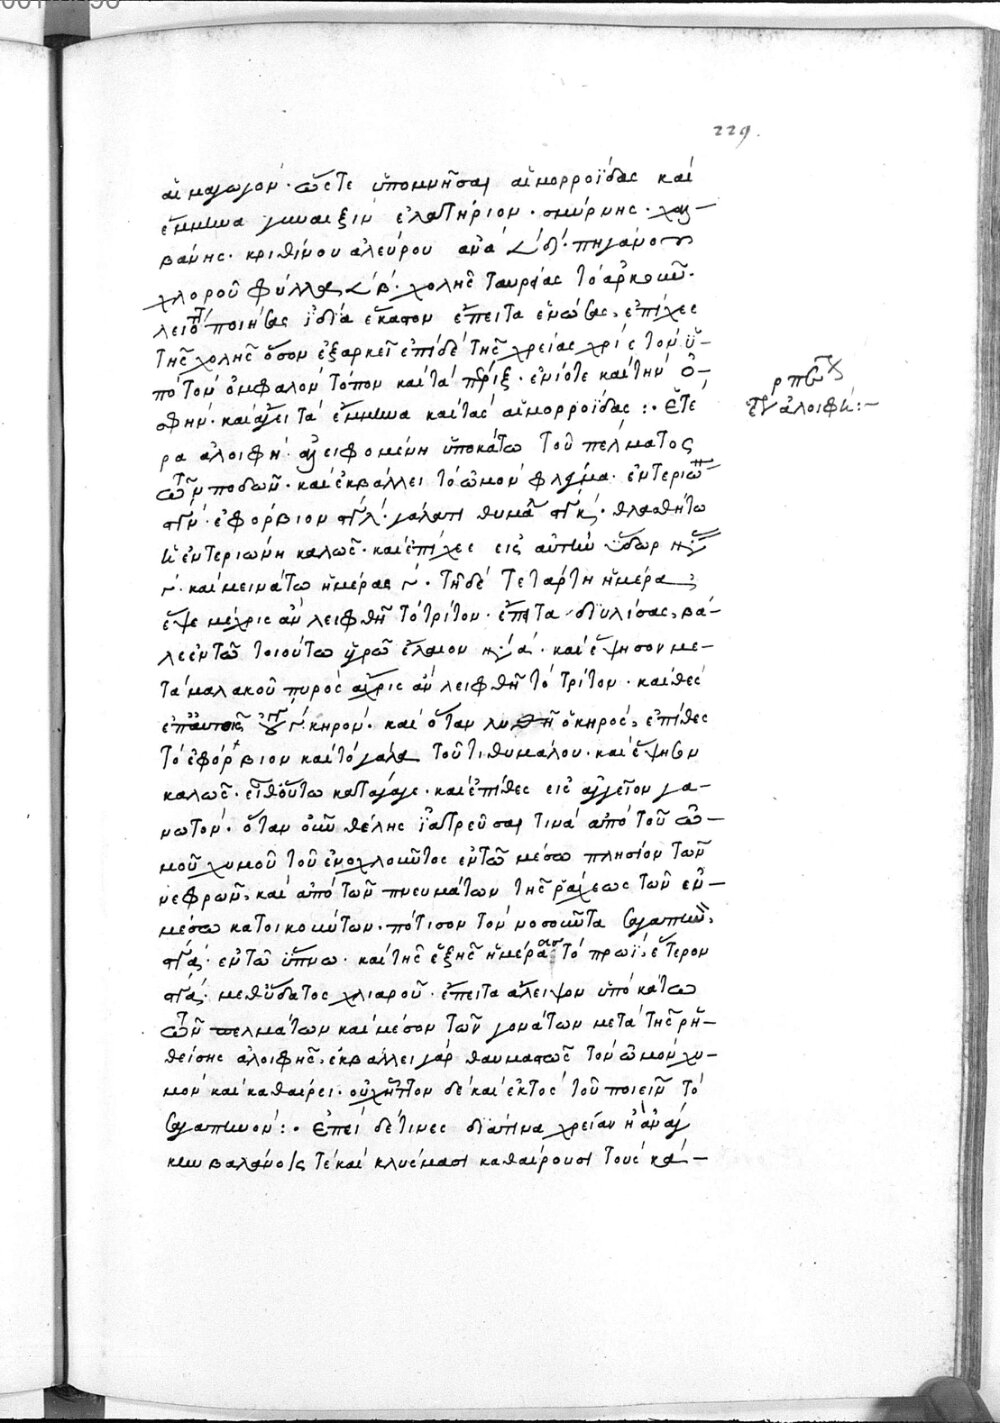 229.
αἱμαγωγόν· ὥστε ὑπομνῆσαι αἱμορροΐδας καὶ
ἔμμηνα γυναιξὶν ἐλατήριον· σμύρνης· χαλ–
βάνης· κριθίνου ἀλεύρου ἀνὰ
χλοροῦ φύλλα χολῆς ταυρείας τὸ ἀρκοῦν·
ποιήσας ἰδία ἕκαστον ἔπειτα ἑνώσας, ἐπίχεε
τῆς χολῆς ὅσον ἐξαρκεῖ ἐπὶ δὲ τῆς χρείας χρίε τὸν ὑ–
πὸ τὸν ὀμφαλὸν τόπον καὶ τὰ πέριξ· ἐνίοτε καὶ τὴν ὀ–
σφῦν· καὶ ἄγει τὰ ἔμμηνα καὶ τὰς αἱμορροΐδας :· Ἑτέ
ρα ἀλοιφὴ· ἀλειφομένη ὑποκάτω τοῦ πέλματος
τῶν ποδῶν· καὶ ἐκβάλλει τὸ ὠμὸν φλέγμα·
εὐφόρβιον θλασθήτω
ἡ ἐντεριώνη καλῶς· καὶ ἐπίχεε εἰς αὐτὴν ὕδωρ
γ· καὶ μεινάτω ἡμέρας γ· τῇ δὲ τετάρτη ἡμέρα,
ἕψε μέχρις ἂν λειφθῆ τὸ τρίτον· ἔπειτα διυλίσας, βά–
λε ἐν τῶ τοιούτω ὑγρῶ ἔλαιον καὶ ἕψησον με–
τὰ μαλακοῦ πυρὸς ἄχρις ἂν λειφθῆ τὸ τρίτον· καὶ θὲς
κηρόν· καὶ ὅταν λυθῆ ὁ κηρός, ἐπίθες
τὸ εὐφόρβιον καὶ τὸ γάλα τοῦ τιθυμάλου· καὶ ἕψησον
καλῶς· εἶθ' οὕτω κατάγαγε· καὶ ἐπίθες εἰς ἀγγεῖον γα–
νωτόν· ὅταν οὖν θέλης ἰατρεῦσαι τινὰ ἀπὸ τοῦ ὠ–
μοῦ χυμοῦ τοῦ ἐνοχλοῦντος ἐν τῶ μέσω πλησίον τῶν
νεφρῶν, καὶ ἀπὸ τῶν πνευμάτων τῆς ῥάχεως τῶν ἐν–
μέσω κατοικούντων· πότισον τὸν νοσοῦντα
ἐν τῶ ὕπνω· καὶ τῆς ἑξῆς ἡμέρας τὸ πρωΐ, ἕτερον
μεθ' ὕδατος χλιαροῦ· ἔπειτα ἄλειψον ὑποκάτω
τῶν πελμάτων καὶ μέσον τῶν γονάτων μετὰ τῆς ῥη–
θείσης ἀλοιφῆς, ἐκβάλλει γὰρ θαυμαστῶς τὸν ὠμὸν χυ–
μὸν καὶ καθαίρει· οὐχ ἧττον δὲ καὶ ἐκτὸς τοῦ ποιεῖν τὸ
:· Ἐπεὶ δέ τινες διά τινα χρείαν ἢ ἀνάγ
κην βαλάνοις τὲ καὶ κλύσμασι καθαίρουσι τοὺς κά–
ἀλοιφή :–